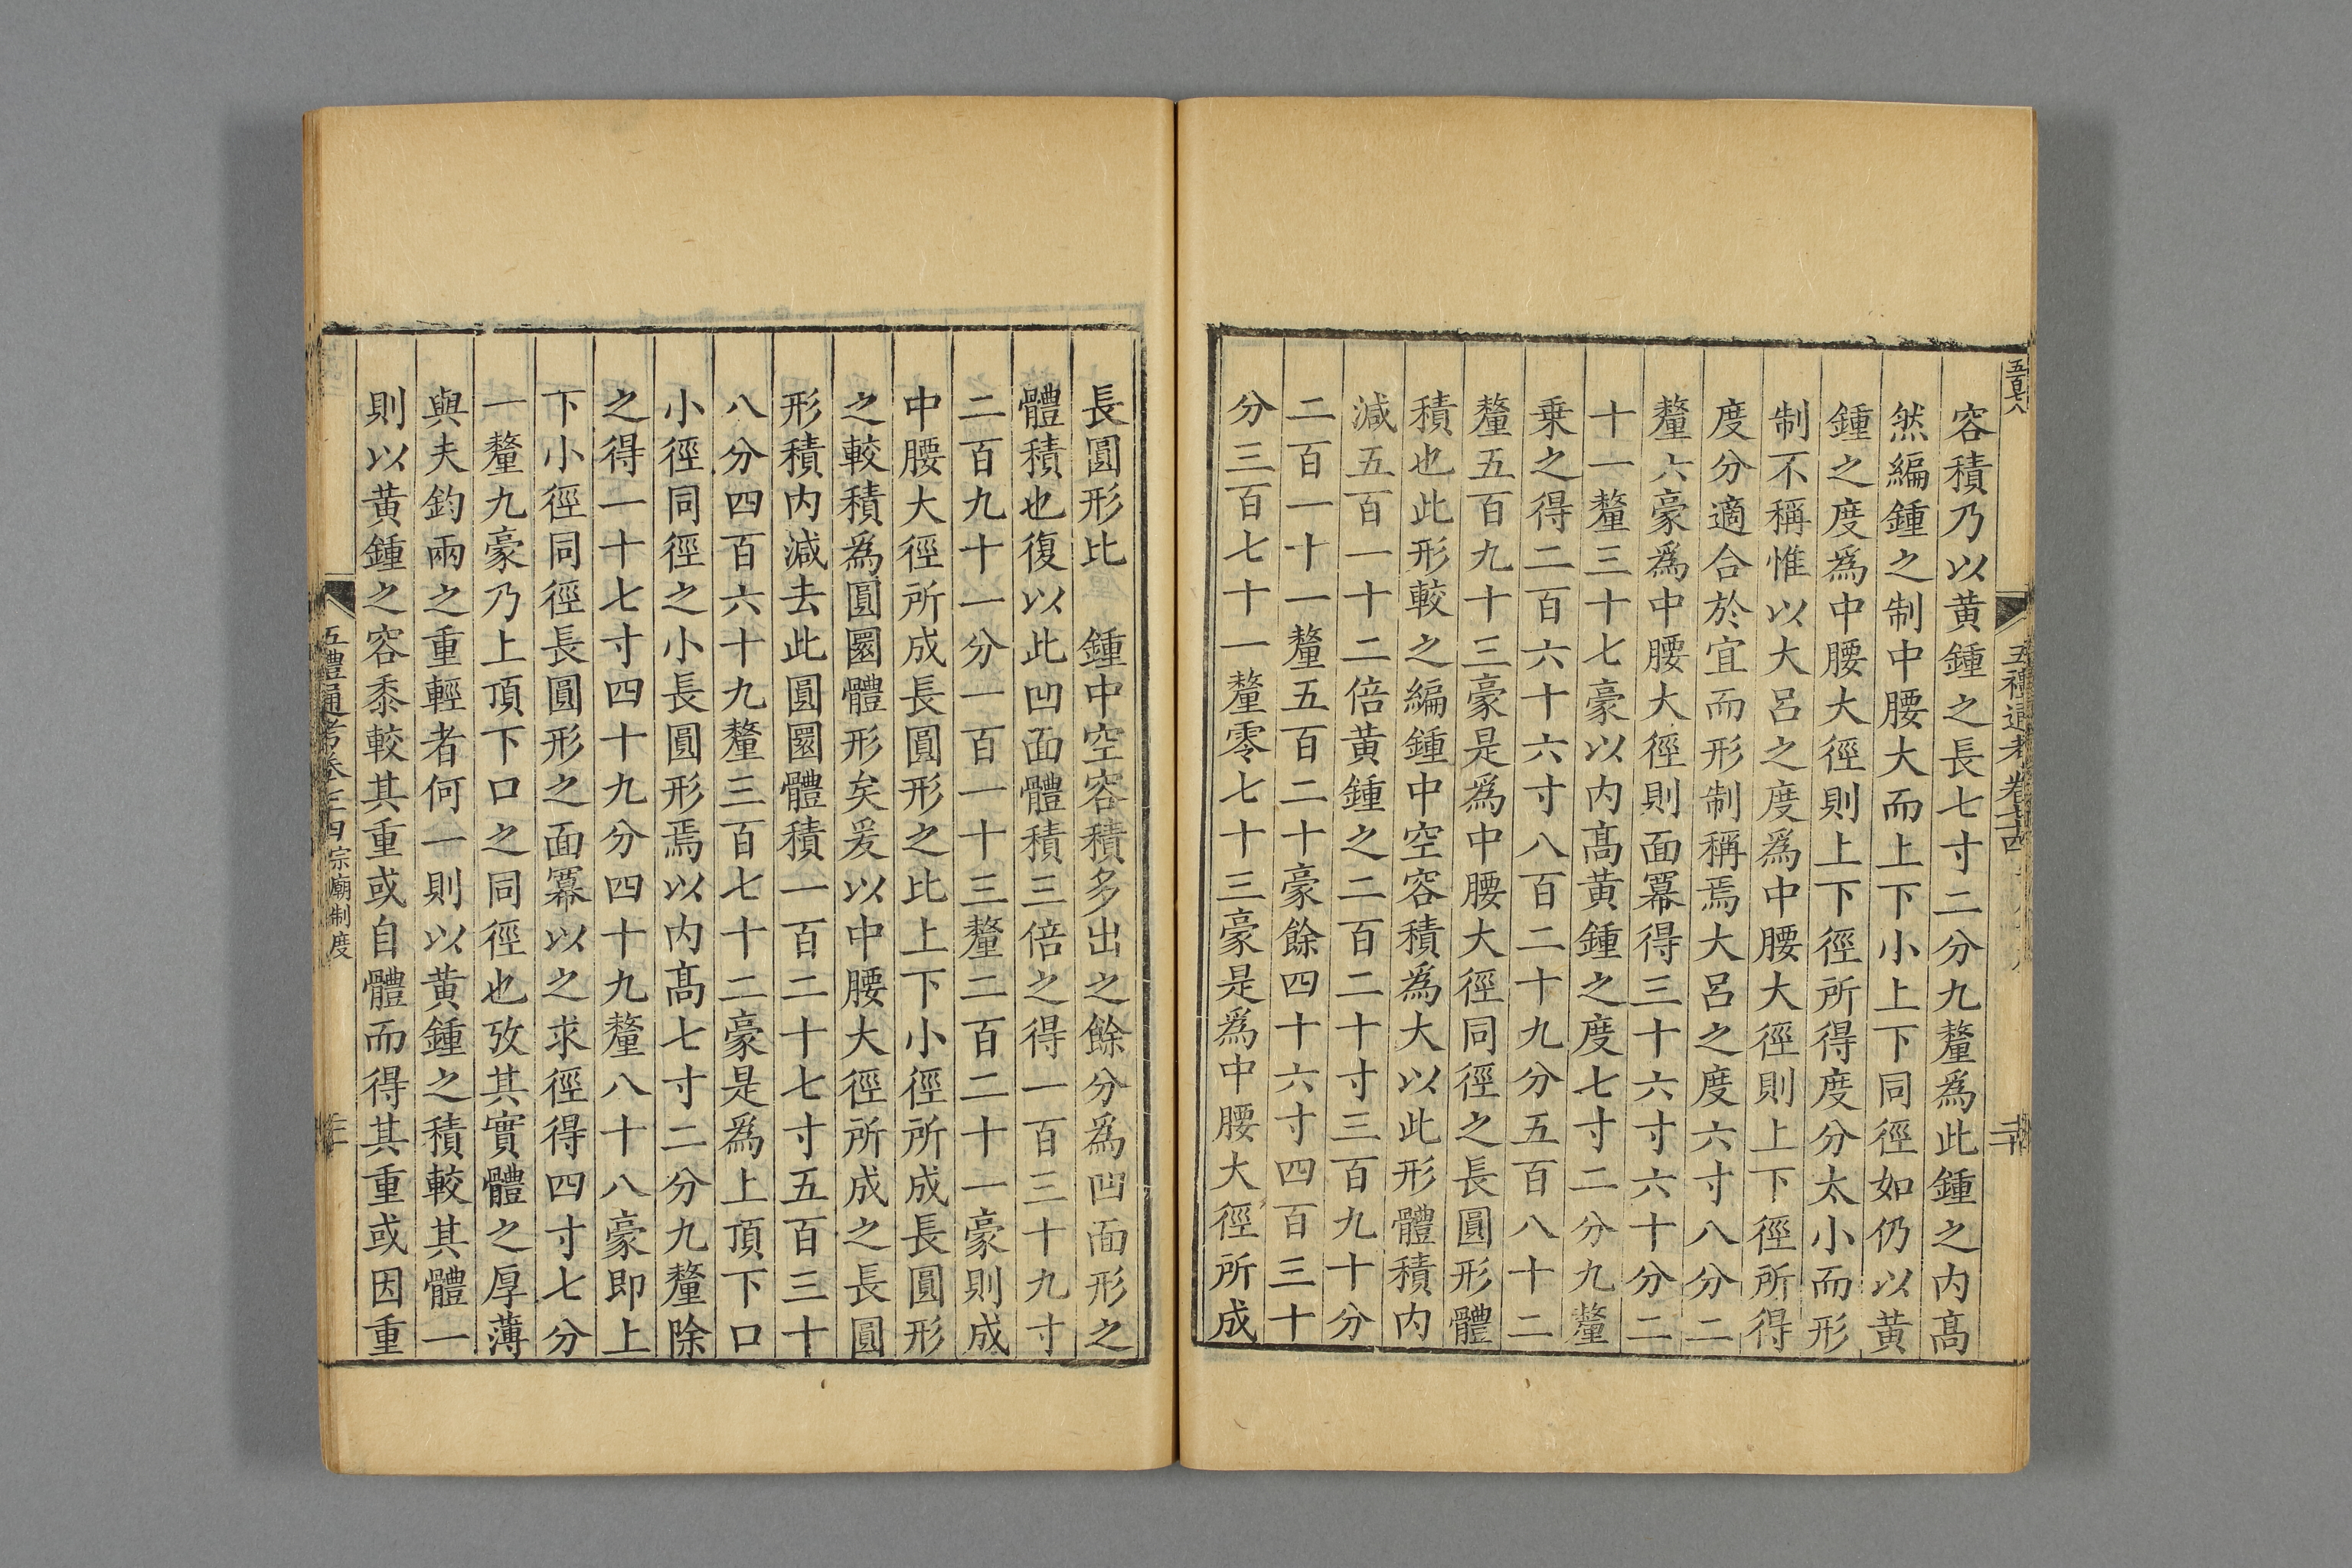 五百七八
五禮通考卷七十四
容積乃以黄鍾之長七寸二分九釐爲此鍾之内髙
然編鍾之制中腰大而上下小上下同徑如仍以黄
鍾之度爲中腰大徑則上下徑所得度分太小而形
制不稱惟以大呂之度爲中腰大徑則上下徑所得
度分適合於宜而形制稱焉大呂之度六寸八分二
釐六豪爲中腰大徑則面冪得三十六寸六十分二
十一釐三十七豪以内髙黄鍾之度七寸二分九釐
乗之得二百六十六寸八百二十九分五百八十二
釐五百九十三豪是爲中腰大徑同徑之長圓形體
積也此形較之編鍾中空容積爲大以此形體積内
減五百一十二倍黄鍾之二百二十寸三百九十分
二百一十一釐五百二十豪餘四十六寸四百三十
分三百七十一釐零七十三豪是爲中腰大徑所成
長圓形比 鍾中空容積多出之餘分爲凹面形之
體積也復以此凹面體積三倍之得一百三十九寸
二百九十一分一百一十三釐二百二十一豪則成
中腰大徑所成長圓形之比上下小徑所成長圓形
之較積爲圓圜體形矣爰以中腰大徑所成之長圓
形積内減去此圓圜體積一百二十七寸五百三十
八分四百六十九釐三百七十二豪是爲上頂下口
小徑同徑之小長圓形焉以内髙七寸二分九釐除
之得一十七寸四十九分四十九釐八十八豪即上
下小徑同徑長圓形之面冪以之求徑得四寸七分
一釐九豪乃上頂下口之同徑也攷其實體之厚薄
與夫鈞兩之重輕者何一則以黄鍾之積較其體一
則以黄鍾之容黍較其重或自體而得其重或因重
宗廟制度